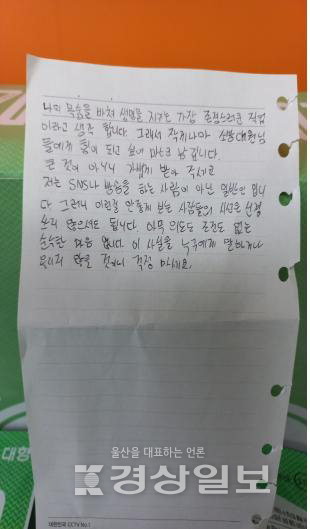 나의 목숨을 바쳐 생명을 지키는 가장 존경스러운 직업
이라고 생각 합니다. 그래서 작게나마 소방대원님
들에게 힘이 되고 싶어 마스크 남깁니다.
큰 것이 아니니 가볍게 받아 주세요
저는 SNS나 방송을 하는 사람이 아닌 일반인 입니
다 그러니 이런걸 안좋게 보는 사람들의 시선은 신경
쓰지 않으셔도 됩니다. 아무 의도도 조건도 없는
순수한 마음 입니다. 이 사실을 누구에게 말하거나
알리지 않을 것이니 걱정 마세요.
울산을 대표하는 언론
경상일보
대한민국 CCTV No.1
대향